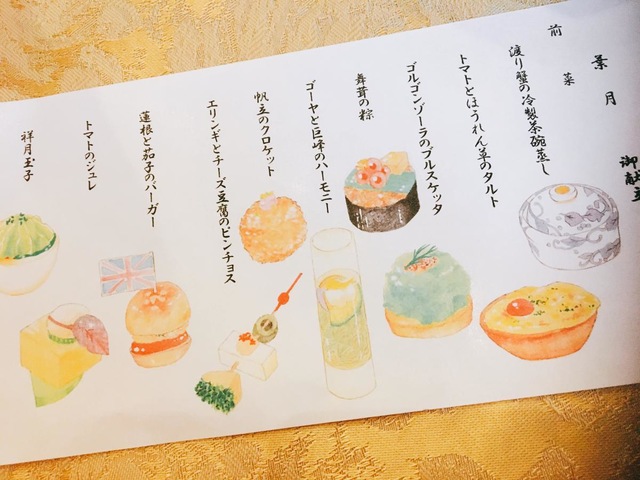 御献立
葉月
前菜
渡り蟹の冷製茶碗蒸し
トマトとほうれん草のタルト
ゴルゴンゾーラのブルスケッタ
舞茸の粽
ゴーヤと巨峰のハーモニー
帆立のクロケット
エリンギとチーズ豆腐のピンチョス
蓮根と茄子のバーガー
トマトのジュレ
祥月玉子